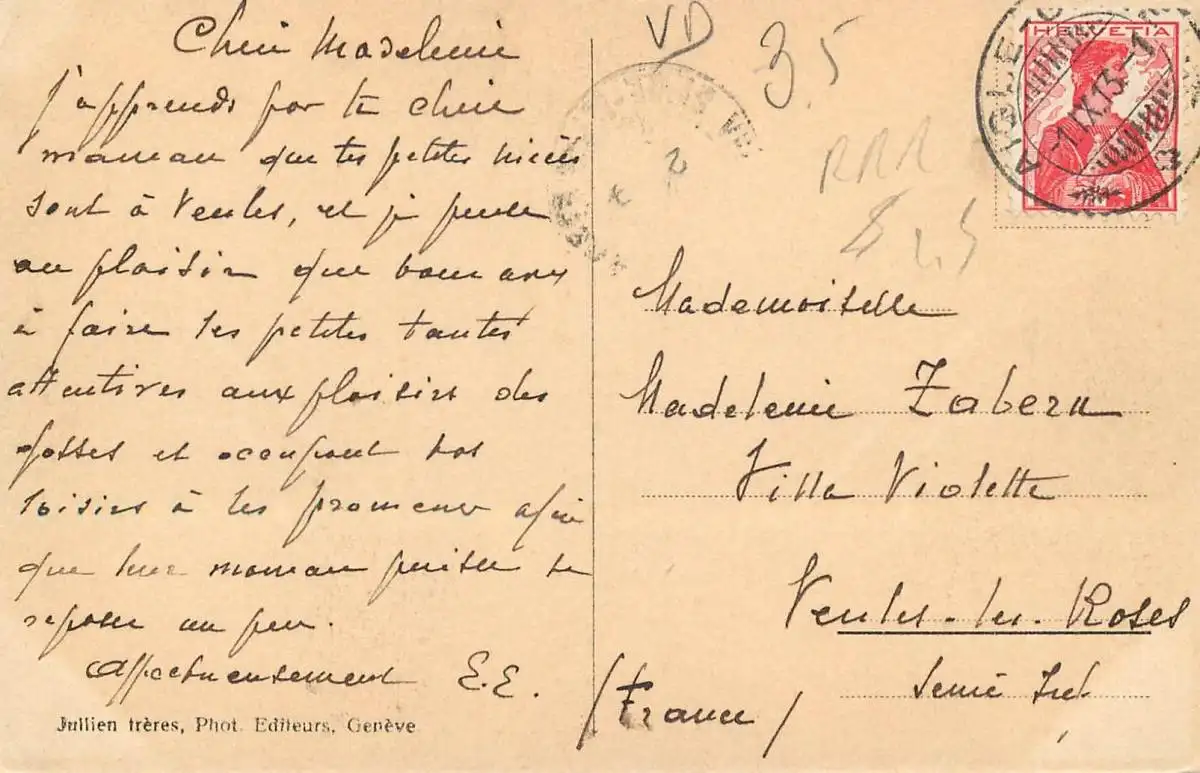 Chère Madeleine
j'apprends par ta chère
maman que tes petites nièces
sont à Veules, et je pense
au plaisir que vous avez
à faire les petites tantes
attentives aux plaisirs des
gosses et occupant vos
loisirs à les promener afin
que leur maman puisse se
reposer un peu.
Affectueusement E.E.
Jullien frères, Phot. Editeurs, Genève
VD
3.5
RRR
HELVETIA
AIGLE
-1.IX.13.-1
Mademoiselle
Madeleine Zabern
Villa Violette
Veules-les-Roses
Seine Inf.
(France)